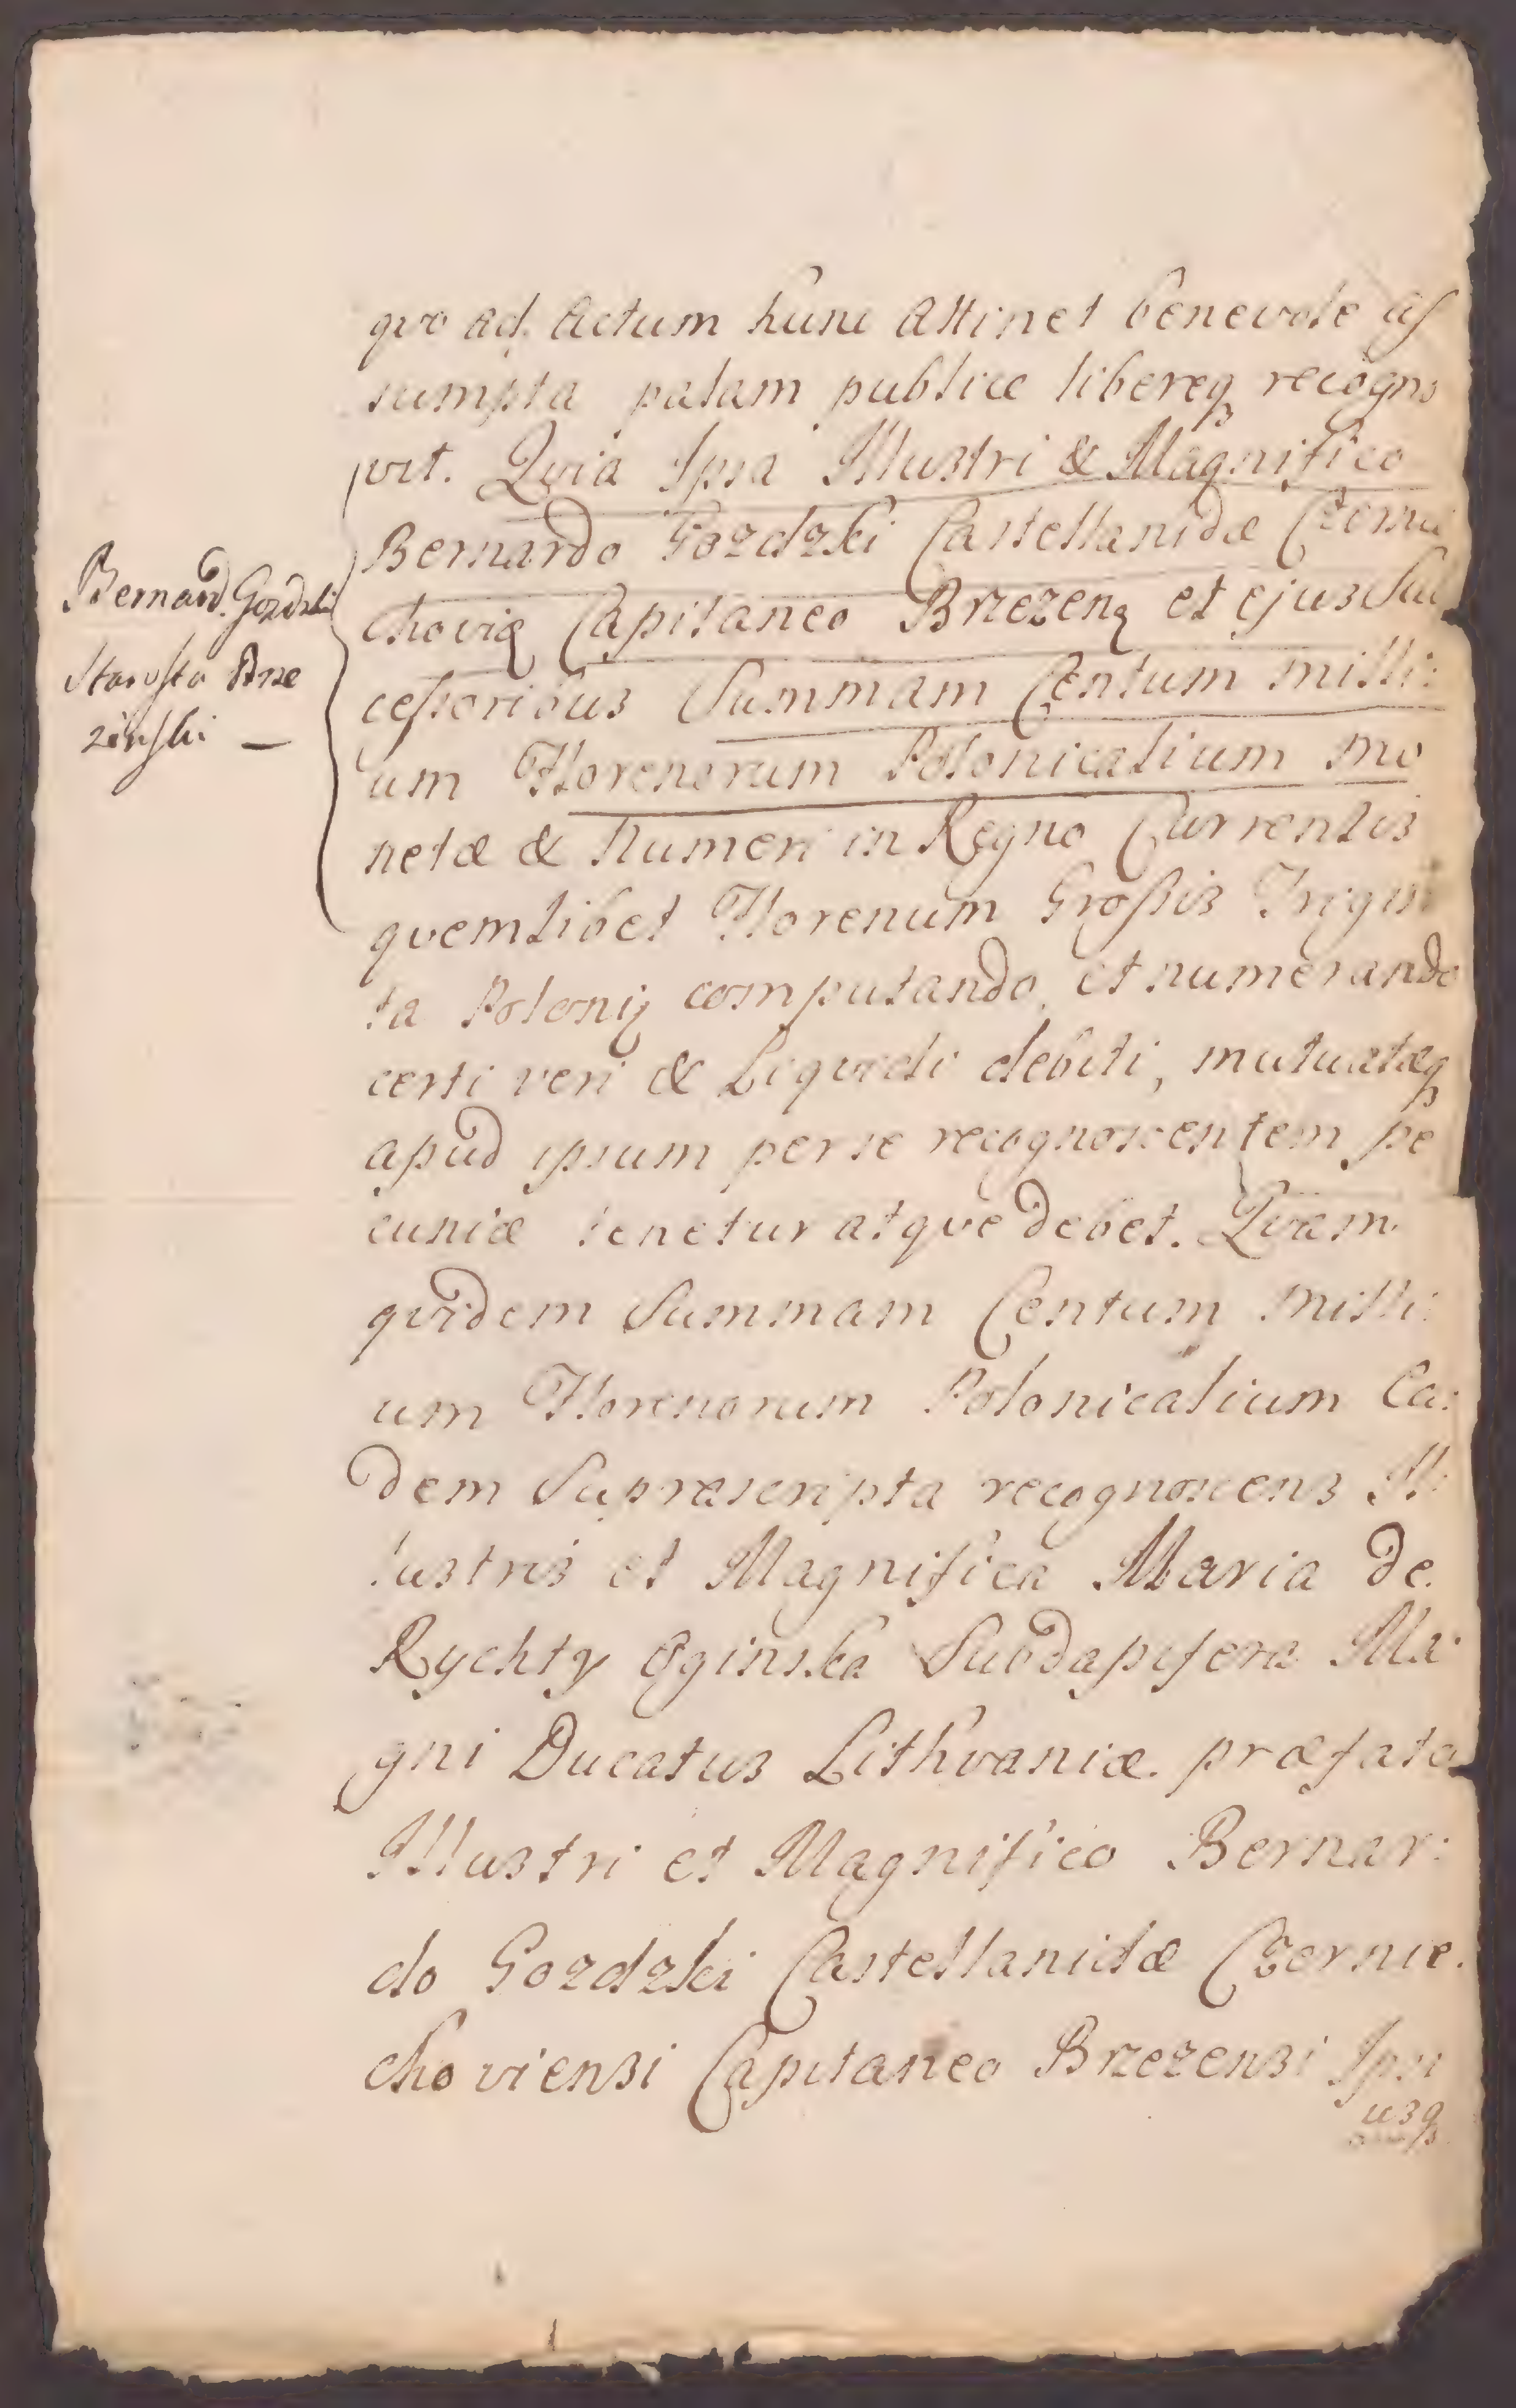 quo ad Actum hunc Attinet benevole as
sumpta palam publice libereq3 recogno
vit. Quia Ipsa Illustri & Magnifico
Bernardo Gozdzki Castellanidæ Czernie
chovię Capitaneo Brzezenę et ejus Suc
cessoribus Summam Centum milli:
um Florenorum Polonicalium mo
netæ & Numeri in Regno Currentis
quemlibet Florenum Grossis Trigin
ta Polonię computando et numerando
certi veri & Liquidi debiti, mutuatæq3
apud ipsum per se recognoscentem pe
cuniæ tenetur atque debet. Quam
quidem Summam Centum Milli:
um Florenorum Polonicalium Ea:
dem Supræscripta recognoscens Il:
lustris et Magnifica Maria de
Rychty Oginska Subdapifera Ma:
gni Ducatus Lithvaniæ præfato
Illustri et Magnifico Bernar:
do Gozdzki Castellanidæ Czernie.
choviensi Capitaneo Brzezensi Ipsi
usq3
Bernard Gozdzki
Starosta Brze
zinski —